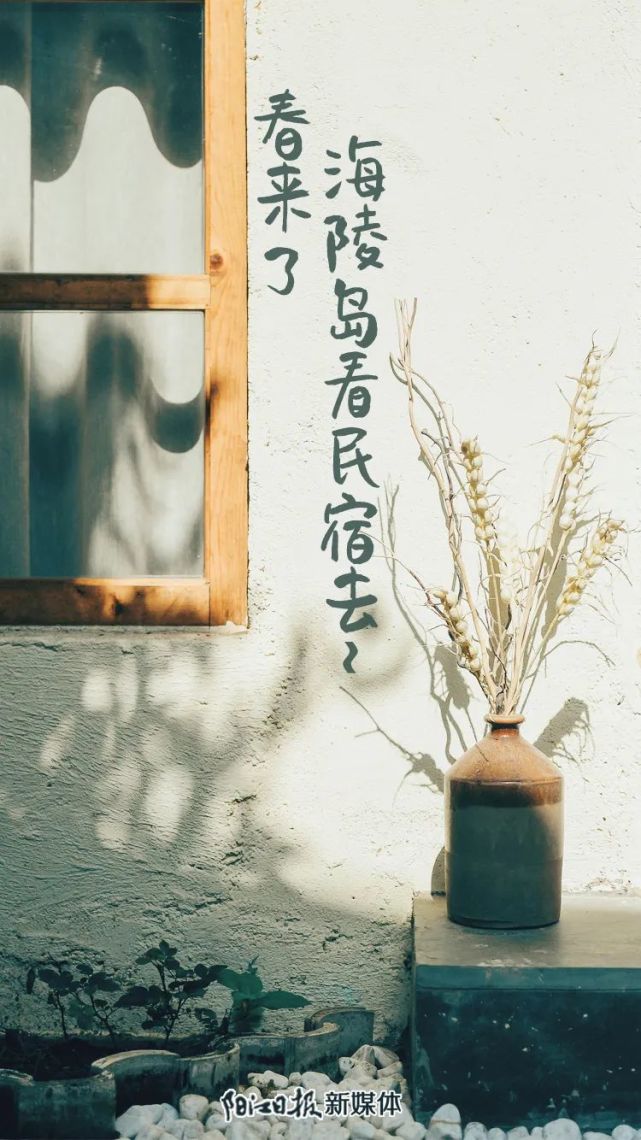 春来了
海陵岛看民宿去~
阳江日报新媒体